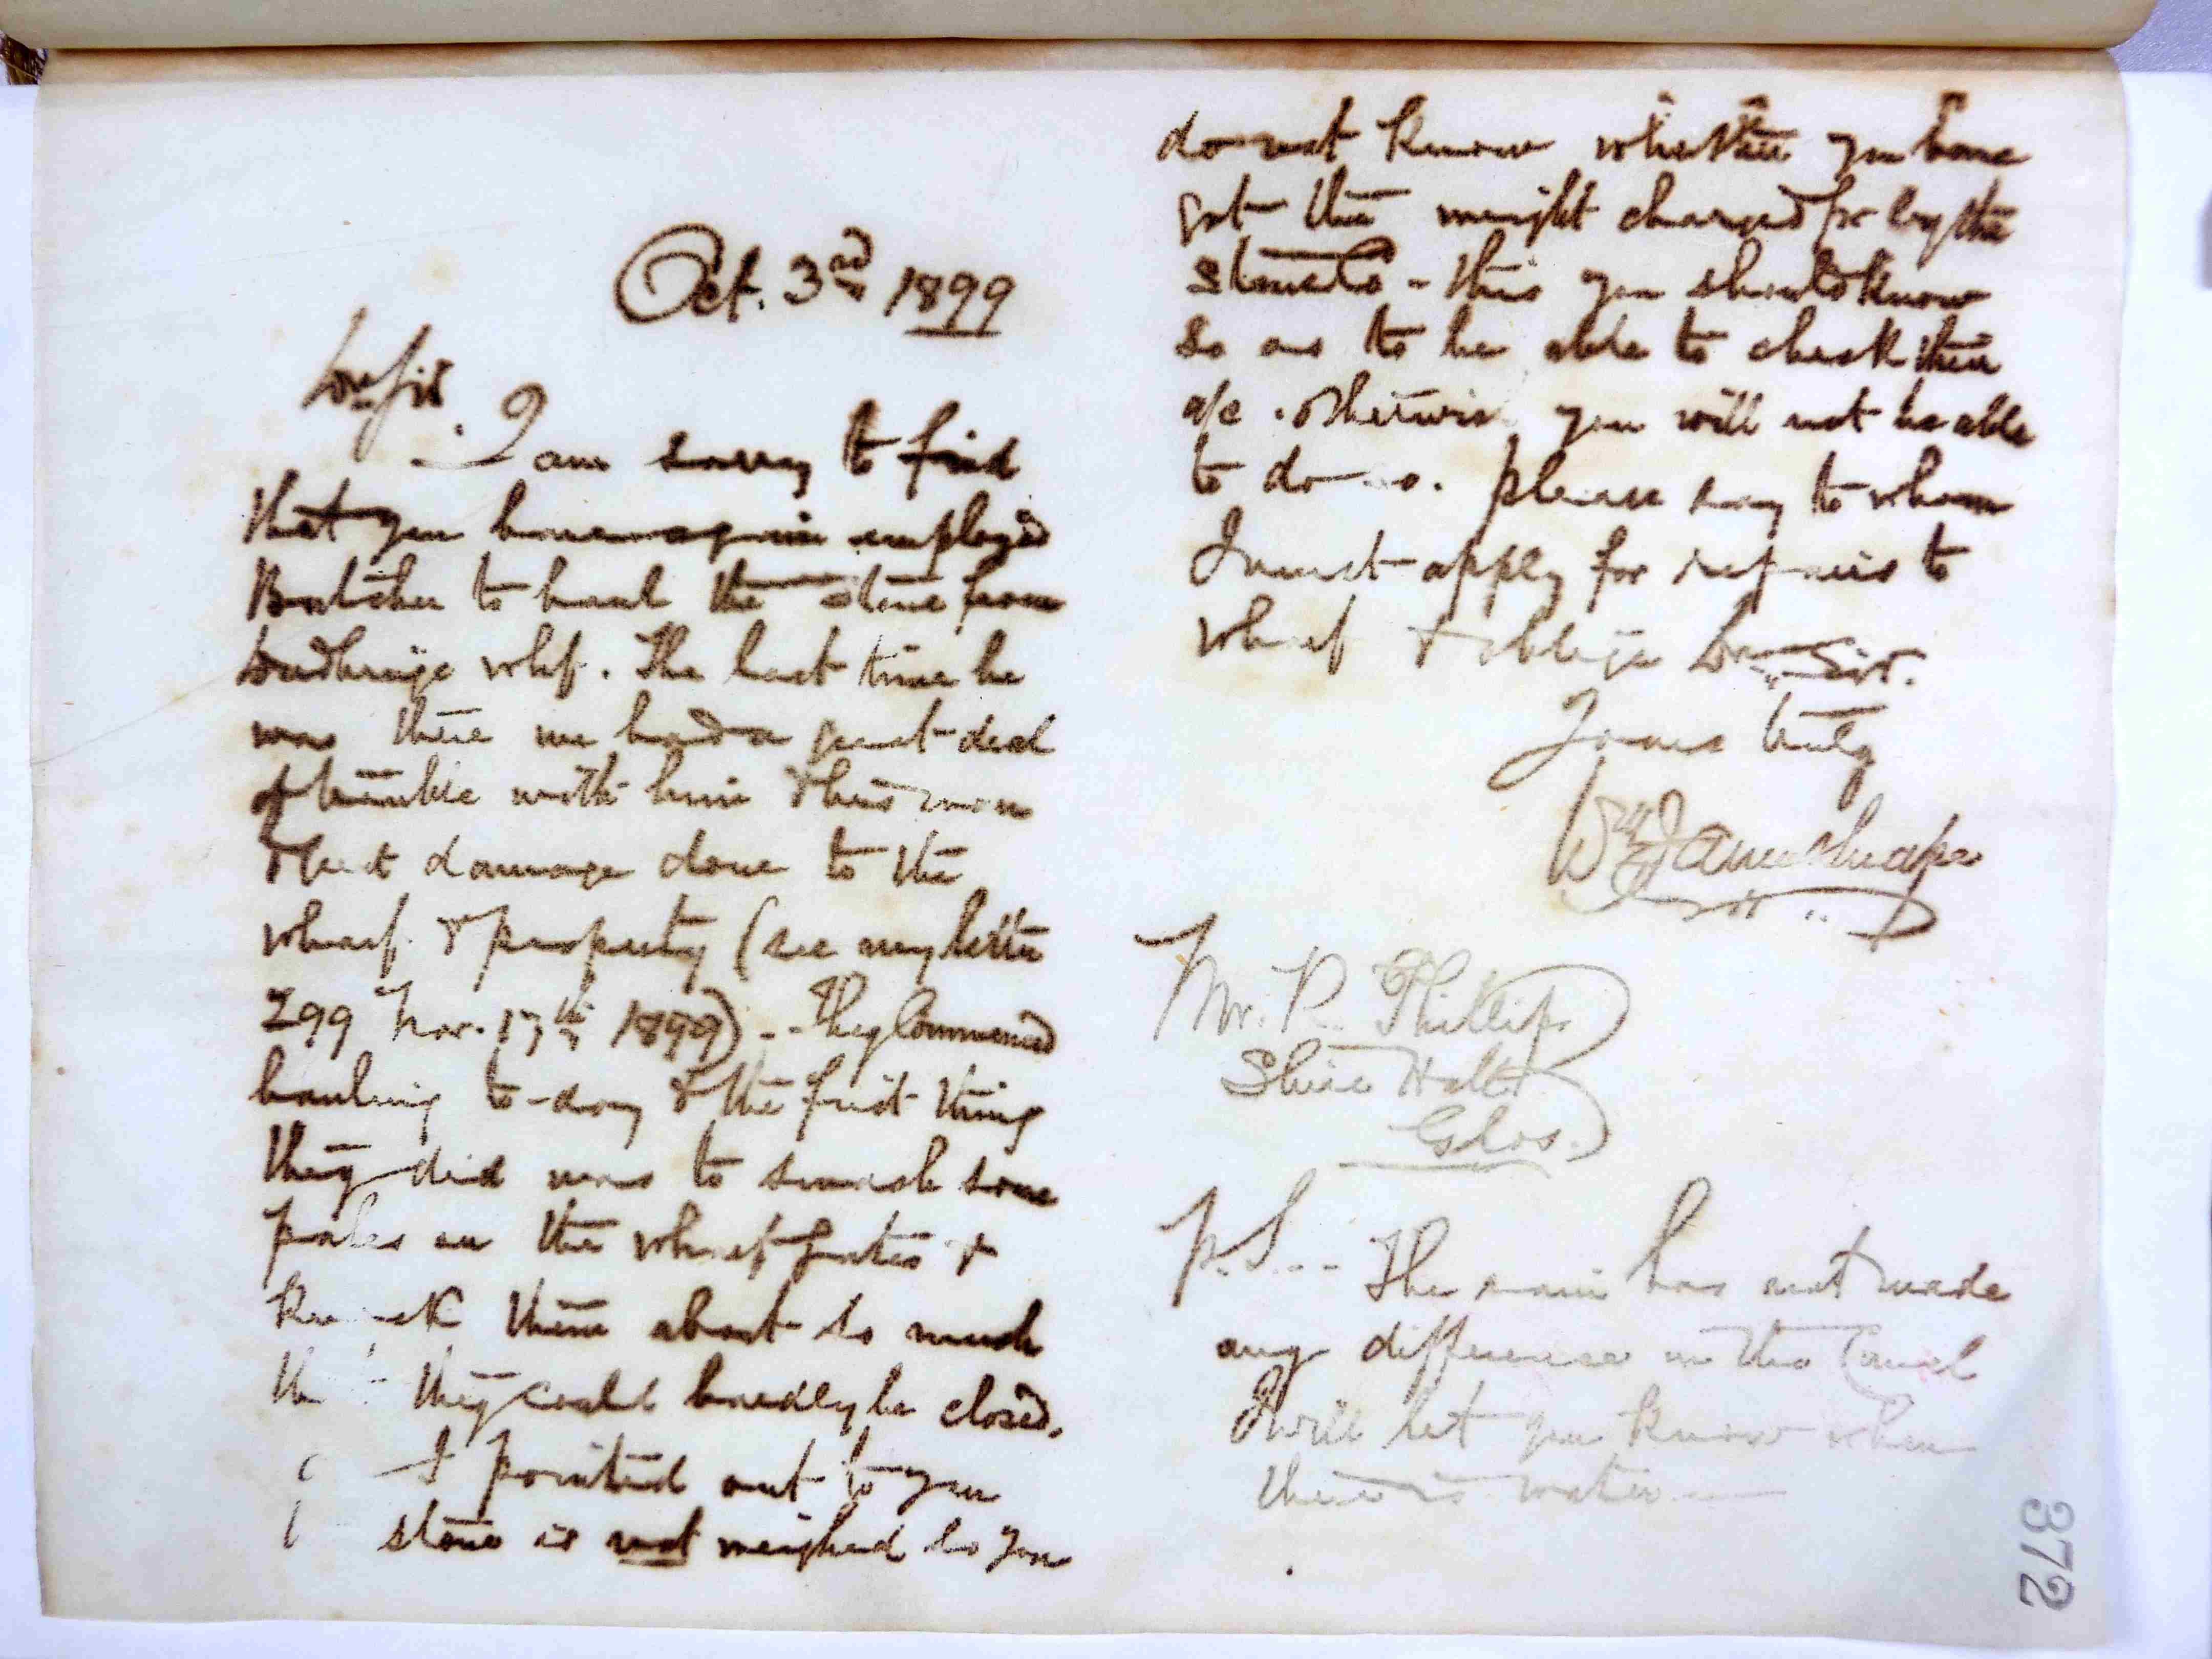 Oct. 3rd 1899
Dr Sir
I am sorry to find
that you have again employed
Butcher to haul the stone from
Dudbridge whf. The last time he
was there we had a great deal
of trouble with him & his men
& great damage done to the
wharf & property (see my letter
299 Nov. 17th 1899) - They Commenced
hauling to-day & the first thing
they did was to smash some
pales in the wharf gates &
knock them about so much
they could hardly be closed.
I pointed out to you
stone is not weighed so you
do not know whether you have
got the weight charged for by the
Stone Co - this you should know
so as to be able to check their
a/c. otherwise you will not be able
to do so. Please say to whom
I must apply for repairs to
wharf & oblige Dr Sir.
Yours truly
Wm J Snape
Mr. R. Phillips
Shire Hall
Glos.
P.S. - The rain has not made
any difference in the Canal
I will let you know when
there is water
372